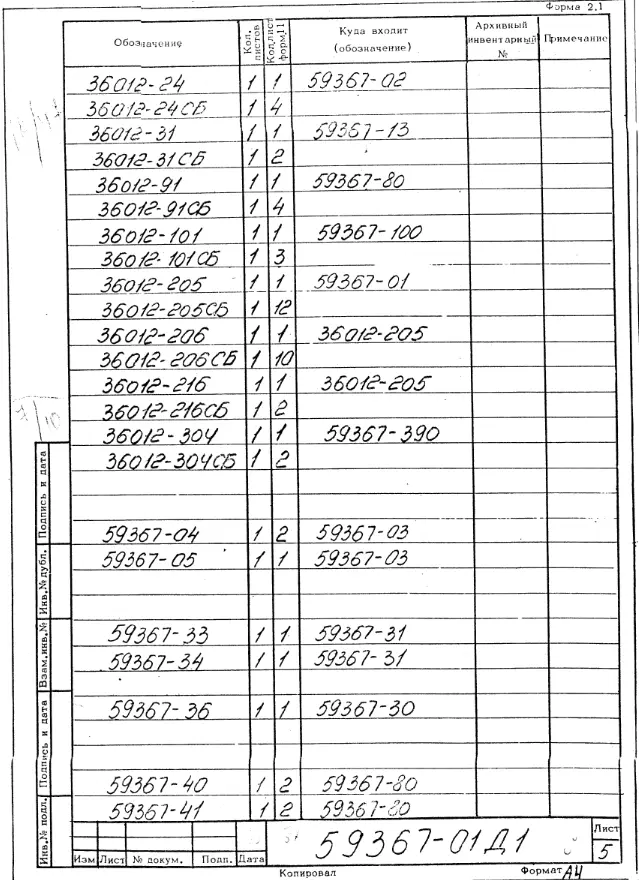 Форма 2.1
Обозначение Кол. листов Кол.лист форм.11 Куда входит (обозначение) Архивный инвентарный № Примечание
36012-24 1 1 59367-02
36012-24СБ 1 4
36012-31 1 1 59367-13
36012-31СБ 1 2
36012-91 1 1 59367-80
36012-91СБ 1 4
36012-101 1 1 59367-100
36012-101СБ 1 3
36012-205 1 1 59367-01
36012-205СБ 1 12
36012-206 1 1 36012-205
36012-206СБ 1 10
36012-216 1 1 36012-205
36012-216СБ 1 2
36012-304 1 1 59367-390
36012-304СБ 1 2
59367-04 1 2 59367-03
59367-05 1 1 59367-03
59367-33 1 1 59367-31
59367-34 1 1 59367-31
59367-36 1 1 59367-30
59367-40 1 2 59367-80
59367-41 1 2 59367-80
Подпись и дата
Инв.№ дубл.
Взам.инв.№
Подпись и дата
Инв.№ подл.
59367-01Д1
Лист
5
Изм Лист № докум. Подп. Дата
Копировал Формат А4